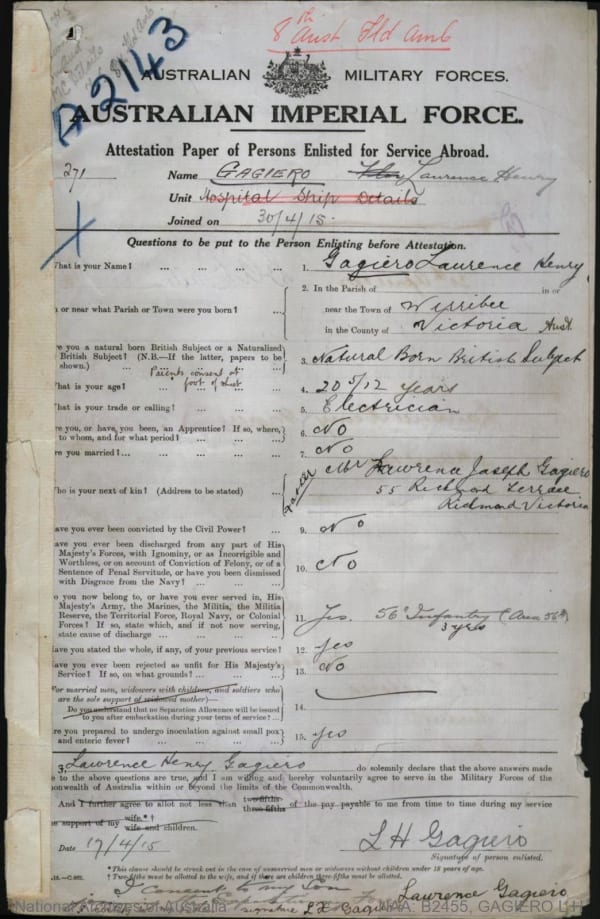 8th Aust Fld Amb
A2143
AUSTRALIAN MILITARY FORCES.
AUSTRALIAN IMPERIAL FORCE.
Attestation Paper of Persons Enlisted for Service Abroad.
271 Name GAGIERO Laurence Henry
Unit Hospital Ship Details
Joined on 30/4/15.
Questions to be put to the Person Enlisting before Attestation.
What is your Name? ... ... ... ... 1. Gagiero Laurence Henry
2. In the Parish of in or
In or near what Parish or Town were you born? ... near the Town of Wirribee
in the County of Victoria Aust.
Are you a natural born British Subject or a Naturalized
British Subject? (N.B.—If the latter, papers to be
shown.) 3. Natural Born British Subject
Parents consent at
foot of sheet
What is your age? ... 4. 20 5/12 years
What is your trade or calling? ... ... ... 5. Electrician
Are you, or have you been, an Apprentice? If so, where,
to whom, and for what period? ... ... ... 6. No
Are you married?... ... ... ... 7. No
Who is your next of kin? (Address to be stated) ... Father Mr Lawrence Joseph Gagiero
55 Richmond Terrace
Richmond Victoria
Have you ever been convicted by the Civil Power? ... 9. No
Have you ever been discharged from any part of His
Majesty's Forces, with Ignominy, or as Incorrigible and
Worthless, or on account of Conviction of Felony, or of a
Sentence of Penal Servitude, or have you been dismissed
with Disgrace from the Navy? ... ... 10. No
Do you now belong to, or have you ever served in, His
Majesty's Army, the Marines, the Militia, the Militia
Reserve, the Territorial Force, Royal Navy, or Colonial
Forces? If so, state which, and if not now serving,
state cause of discharge ... ... ... 11. Yes. 56th Infantry (Area 56th)
3 yrs
Have you stated the whole, if any, of your previous service? 12. yes
Have you ever been rejected as unfit for His Majesty's
Service? If so, on what grounds? ... ... 13. No
(For married men, widowers with children, and soldiers who
are the sole support of widowed mother)—
Do you understand that no Separation Allowance will be issued
to you after embarkation during your term of service?... 14.
Are you prepared to undergo inoculation against small pox
and enteric fever? ... ... ... ... 15. yes
I, Lawrence Henry Gagiero do solemnly declare that the above answers made
me to the above questions are true, and I am willing and hereby voluntarily agree to serve in the Military Forces of the
Commonwealth of Australia within or beyond the limits of the Commonwealth.
And I further agree to allot not less than two-fifths three-fifths of the pay payable to me from time to time during my service
the support of my wife.*† wife and children.
Date 17/4/15 L H Gagiero
Signature of person enlisted.
*This clause should be struck out in the case of unmarried men or widowers without children under 18 years of age.
†Two-fifths must be allotted to the wife, and if there are children three-fifths must be allotted.
I consent to my Son
signature L H Gagiero Lawrence Gagiero
National Archives of Australia NAA: B2455, GAGIERO L H